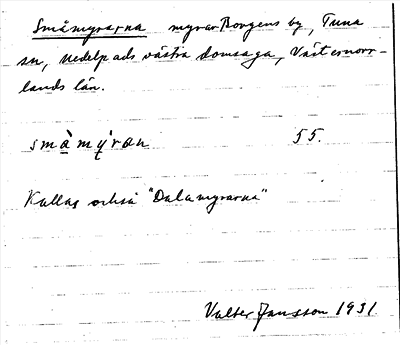 Småmyrarna myrar Borgens by, Tuna
sn, Medelpads västra domsaga, Västernorr-
lands län.
smà̱mÿ́ran 55.
Kallas också "Dalamyrarna"
Valter Jansson 1931